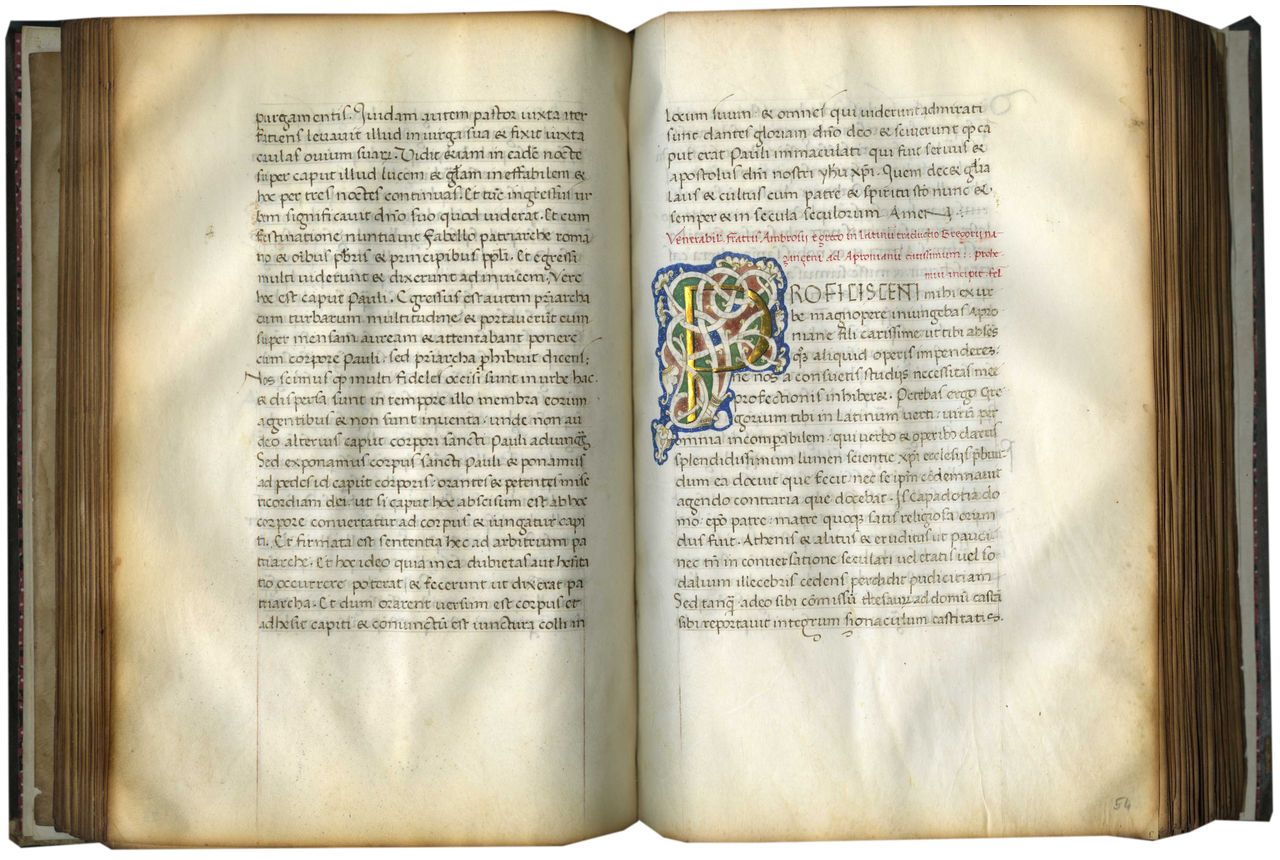 purgamentis. Quidam autem pastor iuxta iter
fatiens levavit illud in virga sua & fixit iuxta
caulas ovium suaꝝ. Vidit &iam in cadē nocte
super caput illud lucem & gl̄am ineffabilem &
hoc per tres noctes continuas. Et tūc ingressus ur
bem significavit dn̄o suo quod viderat. Et cum
festinatione nuntiavit Fabello patriarche roma
no & oībus p̄bris & principibus ppl̄i. Et egressi
multi viderunt & dixerunt ad invicem. Vere
hoc est caput Pauli. Egressus est autem p̄riarcha
cum turbarum multitudine & portaverūt eum
super mensam auream & attentabant ponere
cum corpore Pauli: sed p̄riarcha p̄hibuit dicens;
Nos scimus qp̄ multi fideles occisi sunt in urbe hac.
& dispersa sunt in tempore illo membra eorum
agentibus & non sunt inventa. unde non au
deo alterius caput corpori sancti Pauli adiungȩ̄
Sed exponamus corpus sancti Pauli & ponamus
ad pedes id caput corporis: orantes & petentes mise
ricordiam dei. ut si caput hoc abscisum est ab hoc
corpore convertatur ad corpus & iungatur capi
ti. Et firmata est sententia hec ad arbitrium pa
triarche. Et hoc ideo quia in ea dubietas aut hesita
tio occurrere poterat & fecerunt ut dixerat pa
triarcha. Et dum orarent versum est corpus et
adhesit capiti & coniunctū est iunctura colli in
locum suum & omnes qui viderunt admirati
sunt dantes gloriam dn̄o deo & sciverunt qp̄ ca
put erat Pauli immaculati qui fuit servus &
apostolus dn̄i nostri yhu xp̄i. Quem dec& gl̄ia
laus & cultus cum patre & spiritu sc̄to nunc &
semper & in secula seculorum Amen.
Venerabil. fratris Ambrosii e greco in latinū traductio Gregorii na
zanzeni ad Apronianū carissimum: prohe
mium incipit fel
PROFICISCENTI mihi ex ur
be magnopere iniungebas Apro
niane fili carissime. ut tibi abs&̄s
qꝫ aliquid operis impenderes.
ne nos a consuetis studijs necessitas mee
profectionis inhiber&. Petebas ergo Gre
gorium tibi in latinum verti: virū per
omnia incomp̄abilem: qui verbo & operibꝫ clarus
splendidissimum lumen scientie xp̄i ecclesiis p̄buit
dum ea docuit que fecit nec se ip̄m cōdemnavit
agendo contraria que docebat. Is Capadotia do
mo. ep̄o patre. matre quoqꝫ satis religiosa oriun
dus fuit. Athenis & alitus & eruditus ut pauci
nec tn̄ in conversatione seculari vel etatis vel so
dalium illecebris cedens perdidit pudicitiam
Sed tanqꝫ adeo sibi cōmissū thesaurū ad domū castā
sibi reportavit integrum signaculum castitatis.
54